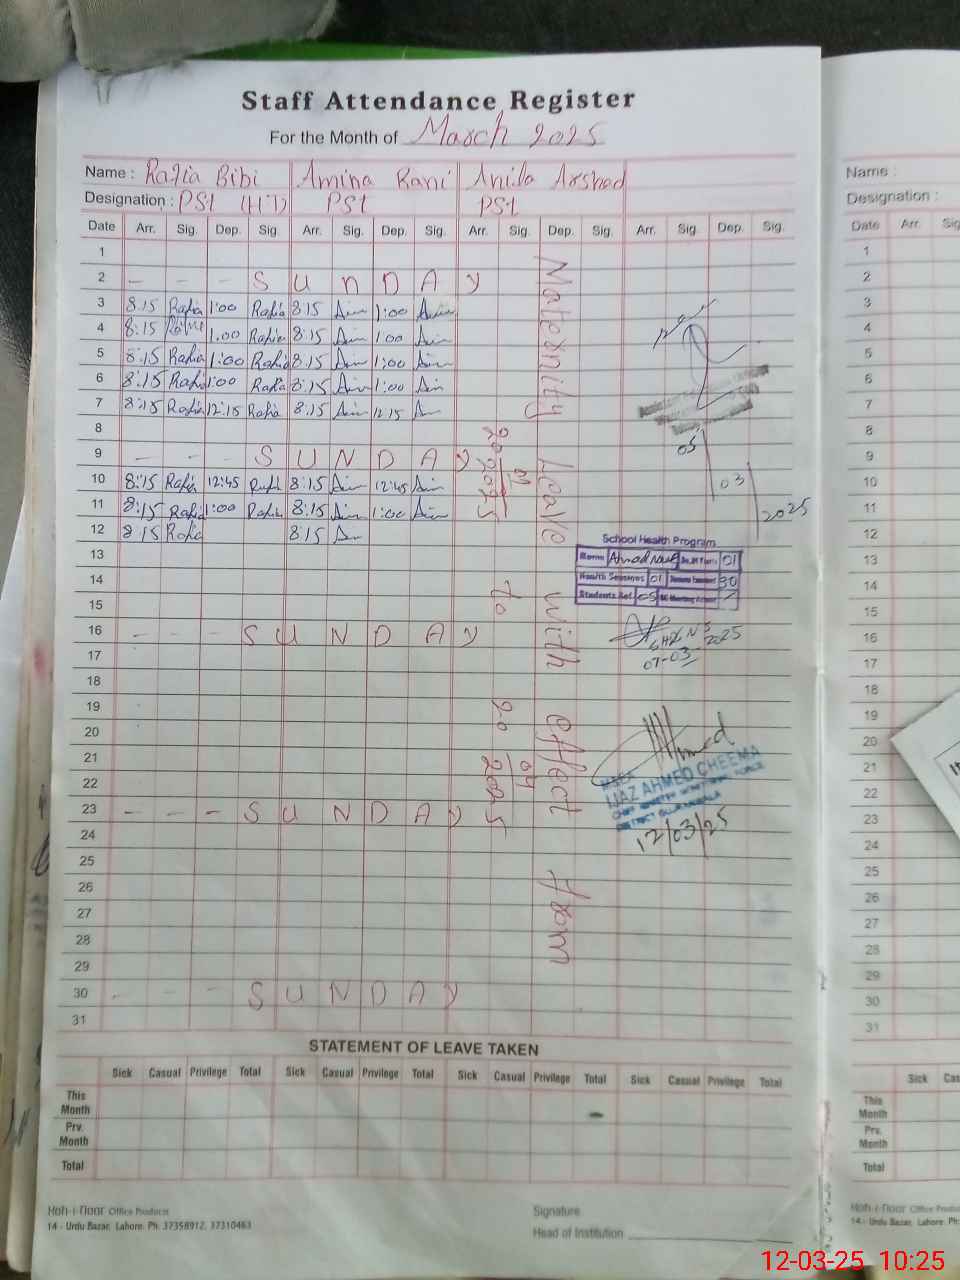 Staff Attendance Register
For the Month of March 2025
Name : Rafia Bibi Amina Rani Anila Arshad
Designation : PST (HT) PST PST
Date Arr. Sig. Dep. Sig. Arr. Sig. Dep. Sig. Arr. Sig. Dep. Sig. Arr. Sig. Dep. Sig.
1
2 - - - S U N D A Y
3 8:15 Rafia 1:00 Rafia 8:15 1:00
4 8:15 1.00 Rafia 8:15 1:00
5 8:15 Rafia 1:00 Rafia 8:15 1:00
6 8:15 Rafia 1:00 Rafia 8:15 1:00
7 8:15 Rafia 12:15 Rafia 8:15 12:15
8
9 - - - S U N D A Y
10 8:15 Rafia 12:45 Rafia 8:15 12:45
11 8:15 Rafia 1:00 Rafia 8:15 1:00
12 8:15 Rafia 8:15
13
14
15
16 - - - S U N D A Y
17
18
19
20
21
22
23 - - - S U N D A Y
24
25
26
27
28
29
30 - - - S U N D A Y
31
Maternity Leave with effect from
to
05
03
2025
School Health Program
Name Ahmad 01
Health Sessions 01 30
Students Ref. 05
07-03-2025
Ahmed
IJAZ AHMED CHEEMA
12/03/25
STATEMENT OF LEAVE TAKEN
Sick Casual Privilege Total Sick Casual Privilege Total Sick Casual Privilege Total Sick Casual Privilege Total
This Month
Prv. Month
Total
Koh-i-Noor Office Products
14 - Urdu Bazar, Lahore. Ph: 37358912, 37310463
Signature
Head of Institution
Name :
Designation :
Date Arr.
1
2
3
4
5
6
7
8
9
10
11
12
13
14
15
16
17
18
19
20
21
22
23
24
25
26
27
28
29
30
31
Sick
This Month
Prv. Month
Total
Koh-i-Noor Office Products
14 - Urdu Bazar, Lahore. Ph:
12-03-25 10:25